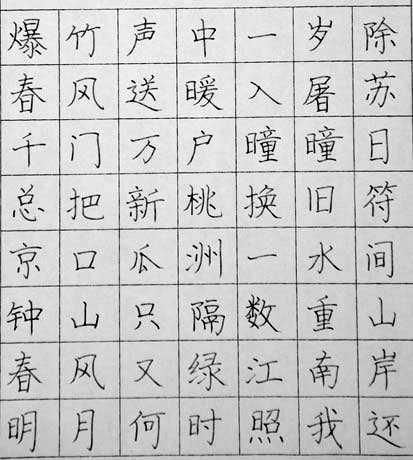 爆竹声中一岁除
春风送暖入屠苏
千门万户曈曈日
总把新桃换旧符
京口瓜洲一水间
钟山只隔数重山
春风又绿江南岸
明月何时照我还